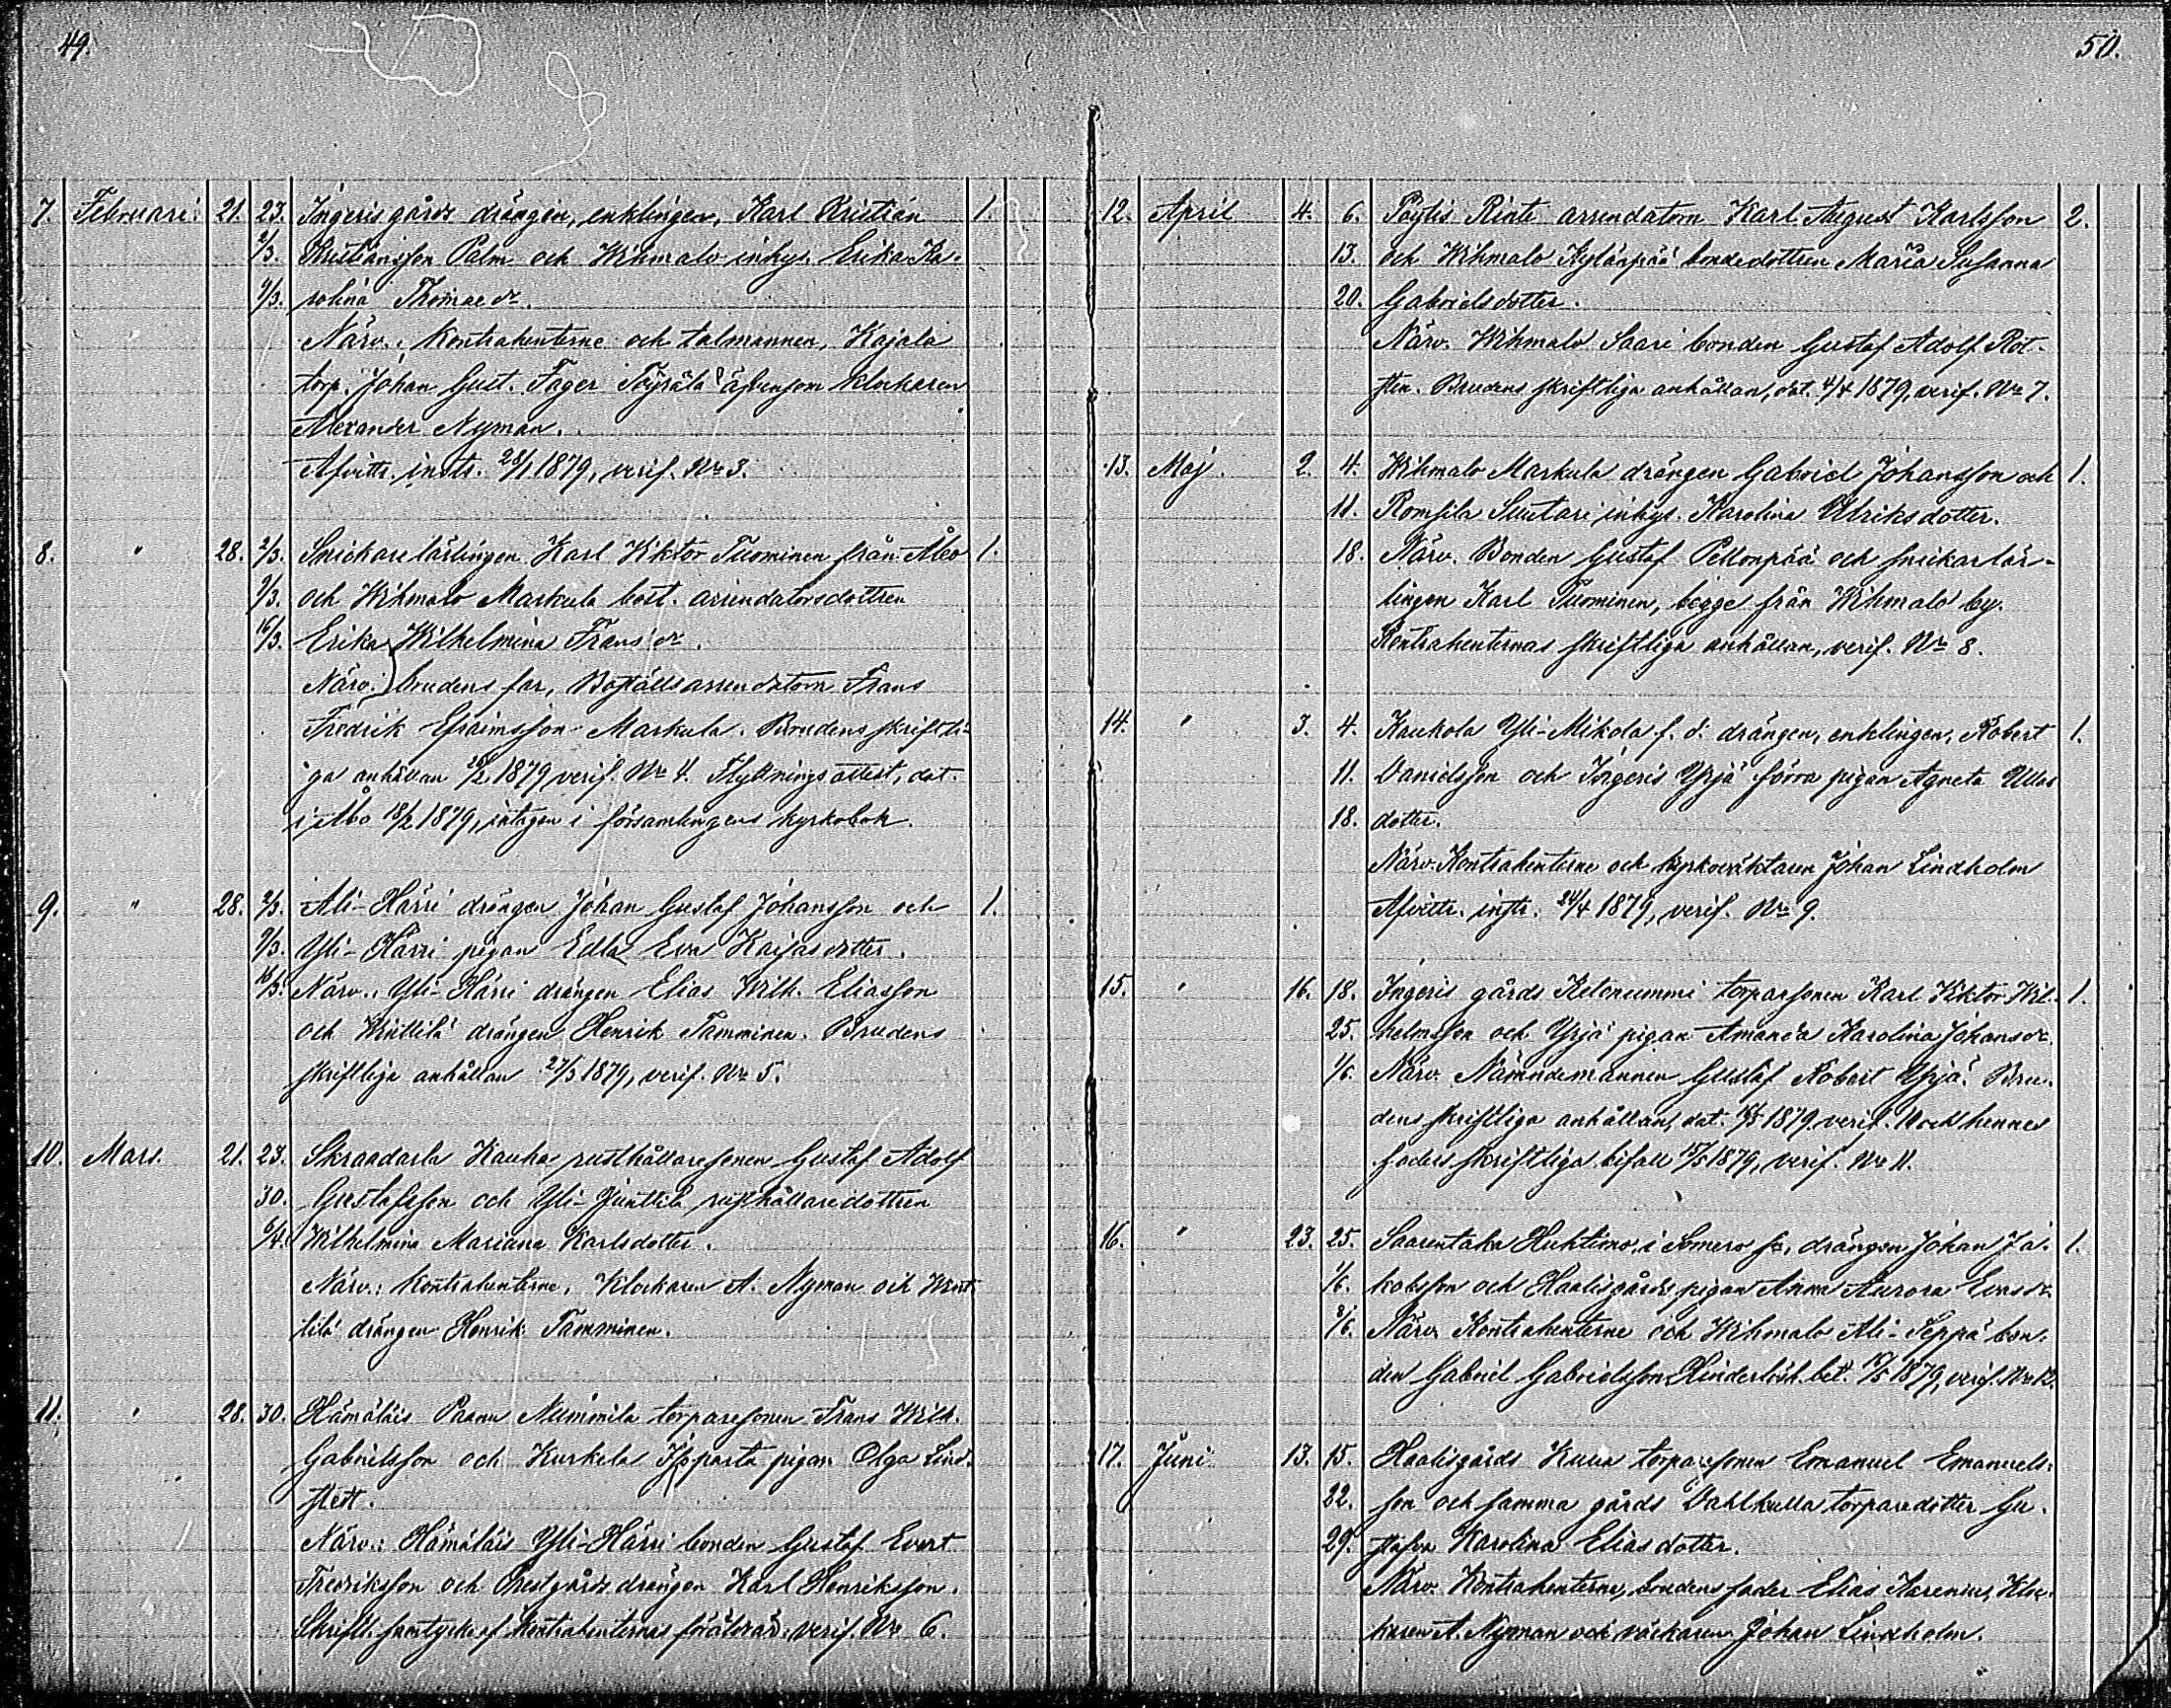 49.
7. Februari. 21. 23. Ingeris gårds drängen, enklingen, Karl Kristian 1.
2/3. Kristiansson Palm och Wihmalo inhys. Erika Ka-
9/3. rolina Thomae dr.
Närv.: Kontrahenterne och talmannen, Kajala
torp. Johan Gust. Fager Töyrälä äfvensom klockaren
Alexander Nyman.
Afvittr. instr. 28/1 1879, verif. No 3.
8. " 28. 2/3. Snickarelärlingen Karl Viktor Tuominen från Åbo 1.
9/3. och Wihmalo Markula bost. arrendatorsdottren
16/3. Erika Wilhelmina Frans dr.
Närv. brudens far, Boställsarrendatorn Frans
Fredrik Efraimsson Markula. Brudens skriftli-
ga anhållan 28/2 1879 verif. No 4. Flyttningsattest, dat.
i Åbo 18/2 1879, intagen i församlingens kyrkobok.
9. " 28. 2/3. Ali-Härri drängen Johan Gustaf Johansson och 1.
9/3. Yli-Härri pigan Edla Eva Kaijasdotter.
16/3. Närv.: Yli-Härri drängen Elias Wilh. Eliasson
och Winttilä drängen Henrik Tamminen. Brudens
skriftliga anhållan 27/3 1879, verif. No 5.
10. Mars. 21. 23. Skraadarla Kauha rusthållaresonen Gustaf Adolf
30. Gustafsson och Yli-Junttila rusthållaredottren
6/4. Wilhelmina Mariana Karlsdotter.
Närv.: Kontrahenterne, Klockaren A. Nyman och Wint-
tilä drängen Henrik Tamminen.
11. " 28. 30. Hämäläis Paanu Nummila torparesonen Frans Wilh.
Gabrielsson och Kurkela Isoparta pigan Olga Lind-
stedt.
Närv.: Hämäläis Yli-Härri bonden Gustaf Evert
Fredriksson och Prestgårds drängen Karl Henriksson.
Skriftl. samtycke af Kontrahenternas föräldrar: verif. No 6.
50.
12. April 4. 6. Pöytis Rinte arrendatorn Karl August Karlsson 2.
13. och Wihmalo Kylänpää bondedottren Maria Susanna
20. Gabrielsdotter.
Närv. Wihmalo Saari bonden Gustaf Adolf Rot-
sten. Brudens skriftliga anhållan, dat. 4/4 1879, verif. No 7.
13. Maj. 2. 4. Wihmalo Markula drängen Gabriel Johansson och 1.
11. Romsila Suutari inhys. Karolina Ulriksdotter.
18. Närv. Bonden Gustaf Pellonpää och snickarlär-
lingen Karl Tuominen, begge från Wihmalo by.
Kontrahenternas skriftliga anhållan, verif. No 8.
14. " 3. 4. Kaukola Yli-Mikola f. d. drängen, enklingen, Robert 1.
11. Danielsson och Ingeris Yrjä förra pigan Agneta Ullas
18. dotter.
Närv. Kontrahenterne och kyrkoväktaren Johan Lindholm
Afvittr. instr. 24/4 1879, verif. No 9.
15. " 16. 18. Ingeris gårds Ketonummi torparsonen Karl Viktor Wil- 1.
25. helmsson och Yrjä pigan Amanda Karolina Johansdr.
1/6. Närv. Nämndemannen Gustaf Robert Yrjä. Bru-
dens skriftliga anhållan, dat. 16/5 1879 verif. 10 och hennes
faders skriftliga bifall 15/5 1879, verif. No 11.
16. " 23. 25. Saarentaka Huhtimo, i Somero sn, drängen Johan Ja- 1.
1/6. kobsson och Haalisgårds pigan Anna Aurora Evasdr.
8/6. Närv. Kontrahenterne och Wihmalo Ali-Seppä bon-
den Gabriel Gabrielsson. Hinderlösh. bet. 19/5 1879, verif. No 12.
17. Juni 13. 15. Haalisgårds Kuua torparesonen Emanuel Emanuels-
22. son och samma gårds Dahlkulla torparedotter Gu-
29. stafva Karolina Eliasdotter.
Närv. Kontrahenterne, brudens fader Elias Harenius, Kloc-
karen A. Nyman och väckaren Johan Lindholm.